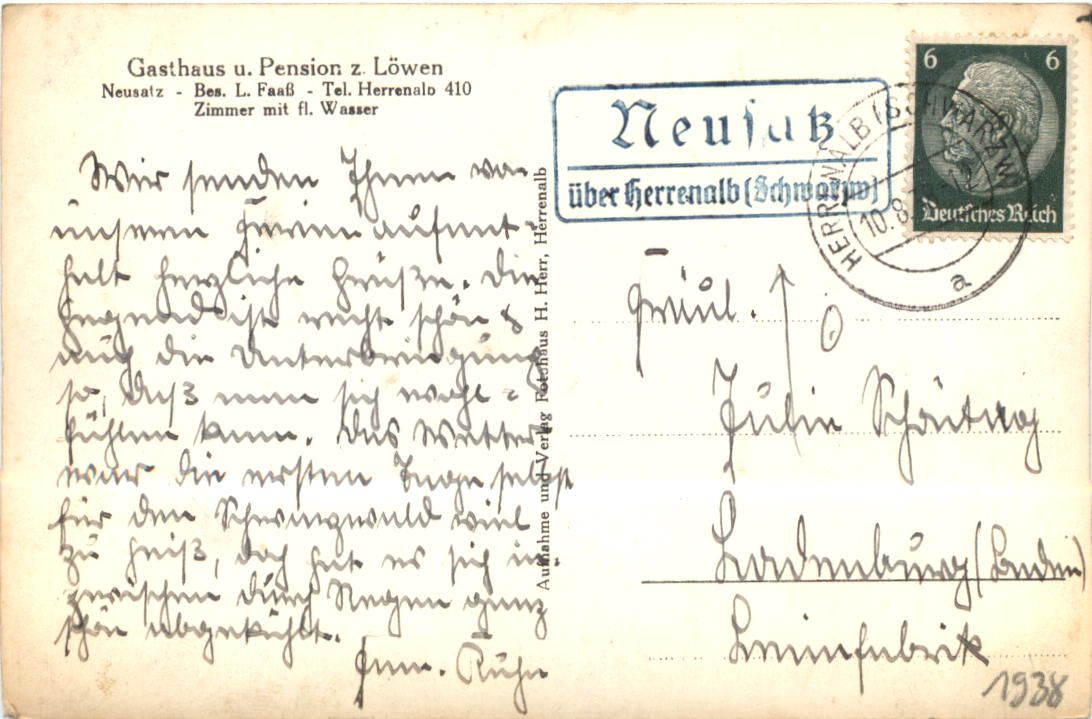 Gasthaus u. Pension z. Löwen
Neusatz - Bes. L. Faaß - Tel. Herrenalb 410
Zimmer mit fl. Wasser
Wir senden Ihnen von
unserem Ferienaufent-
halt herzliche Grüße. Die
Gegend ist recht schön &
auch die Unterbringung
so, daß man sich wohl-
fühlen kann. Das Wetter
war die ersten Tage selbst
für den Schwarzwald viel
zu heiß, doch hat es sich in-
zwischen durch Regen ganz
schön abgekühlt.
Fam. Kuhn
Aufnahme und Verlag Fotohaus H. Herr, Herrenalb
Neusatz
über Herrenalb (Schwarzw)
HERRENALB (SCHWARZW)
10.8.
a
6 6
Deutsches Reich
Fräul.
Julie
Ladenburg (Baden)
Leimfabrik
1938